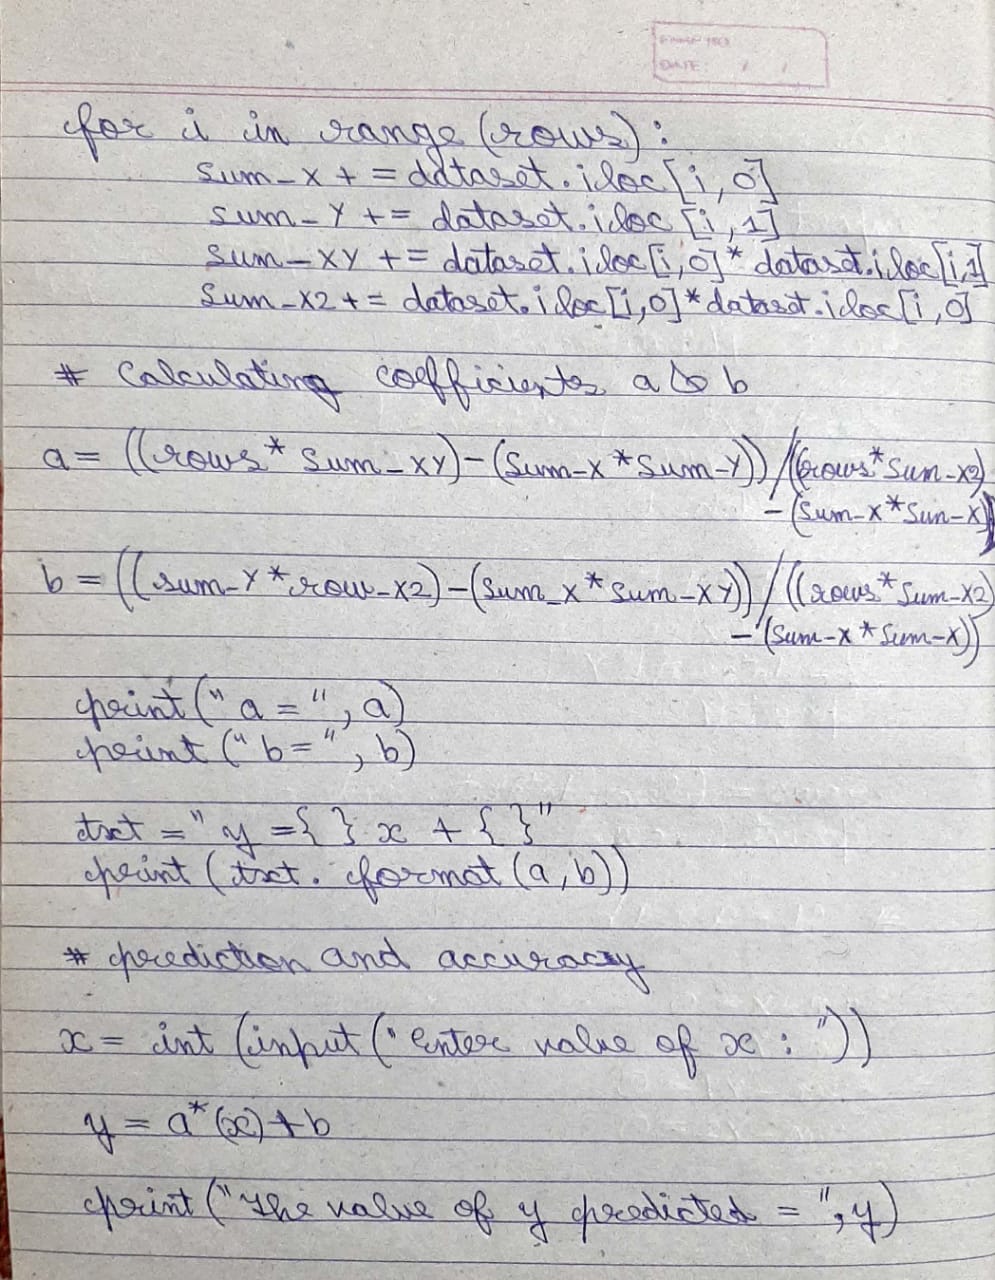 DATE: / /
for i in range (rows) :
sum_x += dataset.iloc[i,0]
sum_y += dataset.iloc[i,1]
sum_xy += dataset.iloc[i,0]* dataset.iloc[i,1]
sum_x2 += dataset.iloc[i,0]*dataset.iloc[i,0]
# Calculating coefficients a & b
a = ((rows* sum_xy)-(sum_x*sum_y))/((rows*sum_x2)
-(sum_x*sun_x))
b = ((sum_y*row_x2)-(sum_x*sum_xy))/((rows*sum_x2)
-(sum_x*sum_x))
print(" a = ", a)
print(" b= ", b)
txt =" y ={ } x + { }"
print (txt. format (a,b))
# prediction and accuracy
x = int (input (" Enter value of x : "))
y = a*(x)+b
print ("The value of y predicted = ", y)